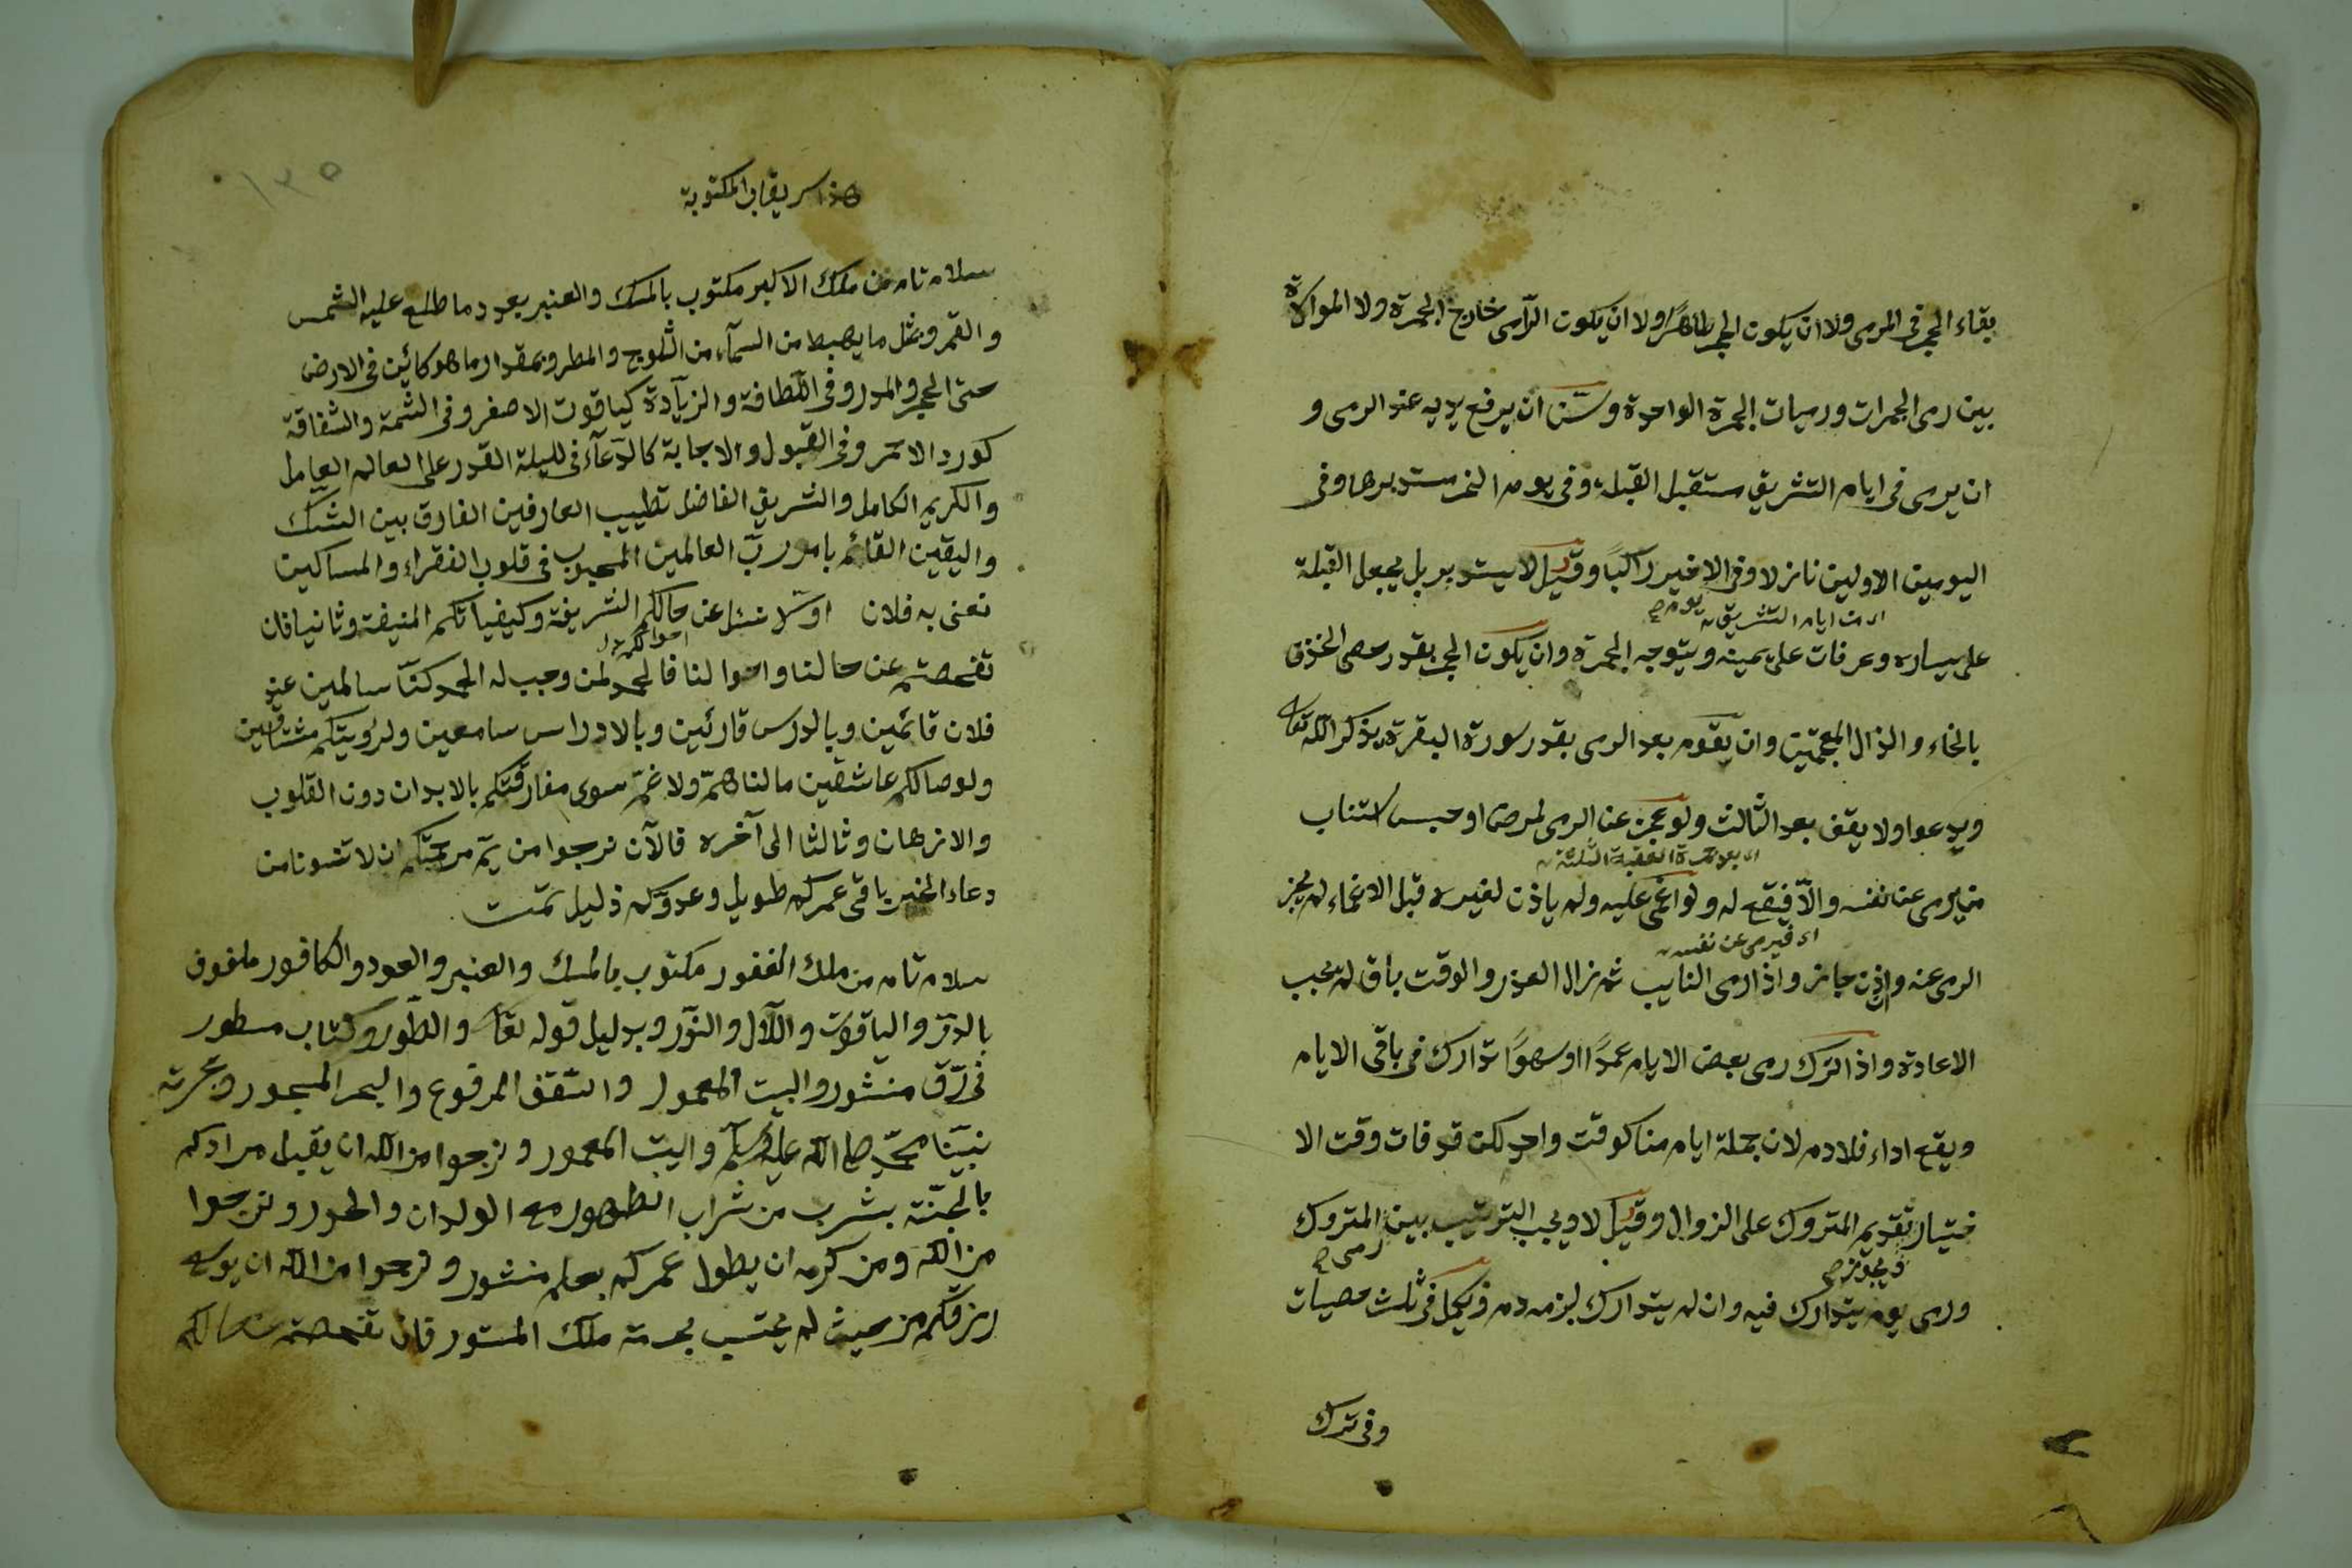 بقاء الحجر في المرمى ولا ان يكون الحجر طاهرًا ولا ان يكون الرّامى خارج الجمرة ولا الموالاة
بين رمى الجمرات ورميات الجمرة الواحدة وسنّ ان يرفع يديه عند الرمى و
ان يرمى في ايام التشريق مستقبل القبلة وفي يوم النحر مستدبرها وفي
اليومين الاولين نازلا وفي الاخير راكبًا وقيل لا يستدبر بل يجعل القبلة
اى من ايام التشريق يوم صح
على يساره وعرفات على يمينه ويتوجه الجمرة وان يكون الحجر بقدر حصى الخذف
بالخاء والذال المعجمتين وان يقوم بعد الرمى بقدر سورة البقرة يذكر اللّه تعا
ويدعوا ولا يقف بعد الثالث ولو عجز عن الرمى لمرض او حبس استناب
اى بعد جمرة العقبة الثلثة
من يرمى عن نفسه والّا فيقع له ولو اغمى عليه ولم ياذن لغيره قبل الاغماء لم يجز
اى فيرمى عن نفسه
الرمى عنه وان اذن جاز واذا رمى النايب ثم زال العذر والوقت باق لم يجب
الاعادة واذا ترك رمى بعض الايام عمدًا او سهوًا تدارك في باقى الايام
ويقع اداء فلا دم لان جملة ايام منا كوقت واحد لكن قد فات وقت الا
ختيار تقديم المتروك على الزوال وقيل لا ويجب الترتيب بين المتروك
ويجوز صح رمى صح
ورمى يوم يتدارك فيه وان لم يتدارك لزمه دم ويكمل في ثلث حصيات
وفي ترك
١٣٥
هذا المكتوبة
سلام تام من ملك الاكبر مكتوب بالمسك والعنبر بعدد ما طلع عليه الشمس
والقمر وبمثل ما يهبط من السمآء من الثلوج والمطر وبمقدار ما هو كائين في الارض
حتى الحجر والمدر وفي اللّطافة والزيآدة كياقوت الاصفر وفي الشمة والشفاقة
كورد الاحمر وفي القبول والاجابة كالدّعآء في لليلة القدر على العالم العامل
والكريم الكامل والشريق الفاضل تطييب العارفين الفارق بين الشّك
واليقين القائم بامر ربّ العالمين المحبوب في قلوب الفقراء والمساكين
نعنى به فلان اوّلا نسئل عن حالكم الشريفة وكيفياتكم المنيفة وثانيا فان
احوالكم
تفحصتم عن حالنا واحوالنا فالحمد لمن وجب له الحمد كنّا سالمين عند
فلان قائمين وبالدرس قارئين وبالادراس سامعين ولرؤيتكم مشتاقين
ولوصالكم عاشقين ما لنا همّ ولا غمّ سوى مفارقتكم بالابدان دون القلوب
والازهان وثالثا الى آخره فالآن نرجوا من يمّ مرحمتكم ان لا تنسونا من
دعاء الخير باقى عمركم طويل وعدوّكم ذليل تمت
سلام تام من ملك الغفور مكتوب بالمسك والعنبر والعود والكافور ملفوف
بالدرّ والياقوت واللآل والنوّر وبدليل قوله تعا والطّور وكتاب مسطور
في رّق منشور والبيت المعمور والسّقف المرفوع والبحر المسجور وبحرمة
نبيّنا محمّد صلى اللّه عليه وسلّم والبيت المعمور ونرجوا من اللّه ان يقبل مرادكم
بالجنّة بشرب من شراب الطهور مع الولدان والحور ونرجوا
من اللّه ومن كرمه ان يطول عمركم بعلم منشور ونرجوا من اللّه ان يوسع
رزقكم من حيث لم يحتسب بحرمة ملك المستور فان تفحصتم عن حالكم